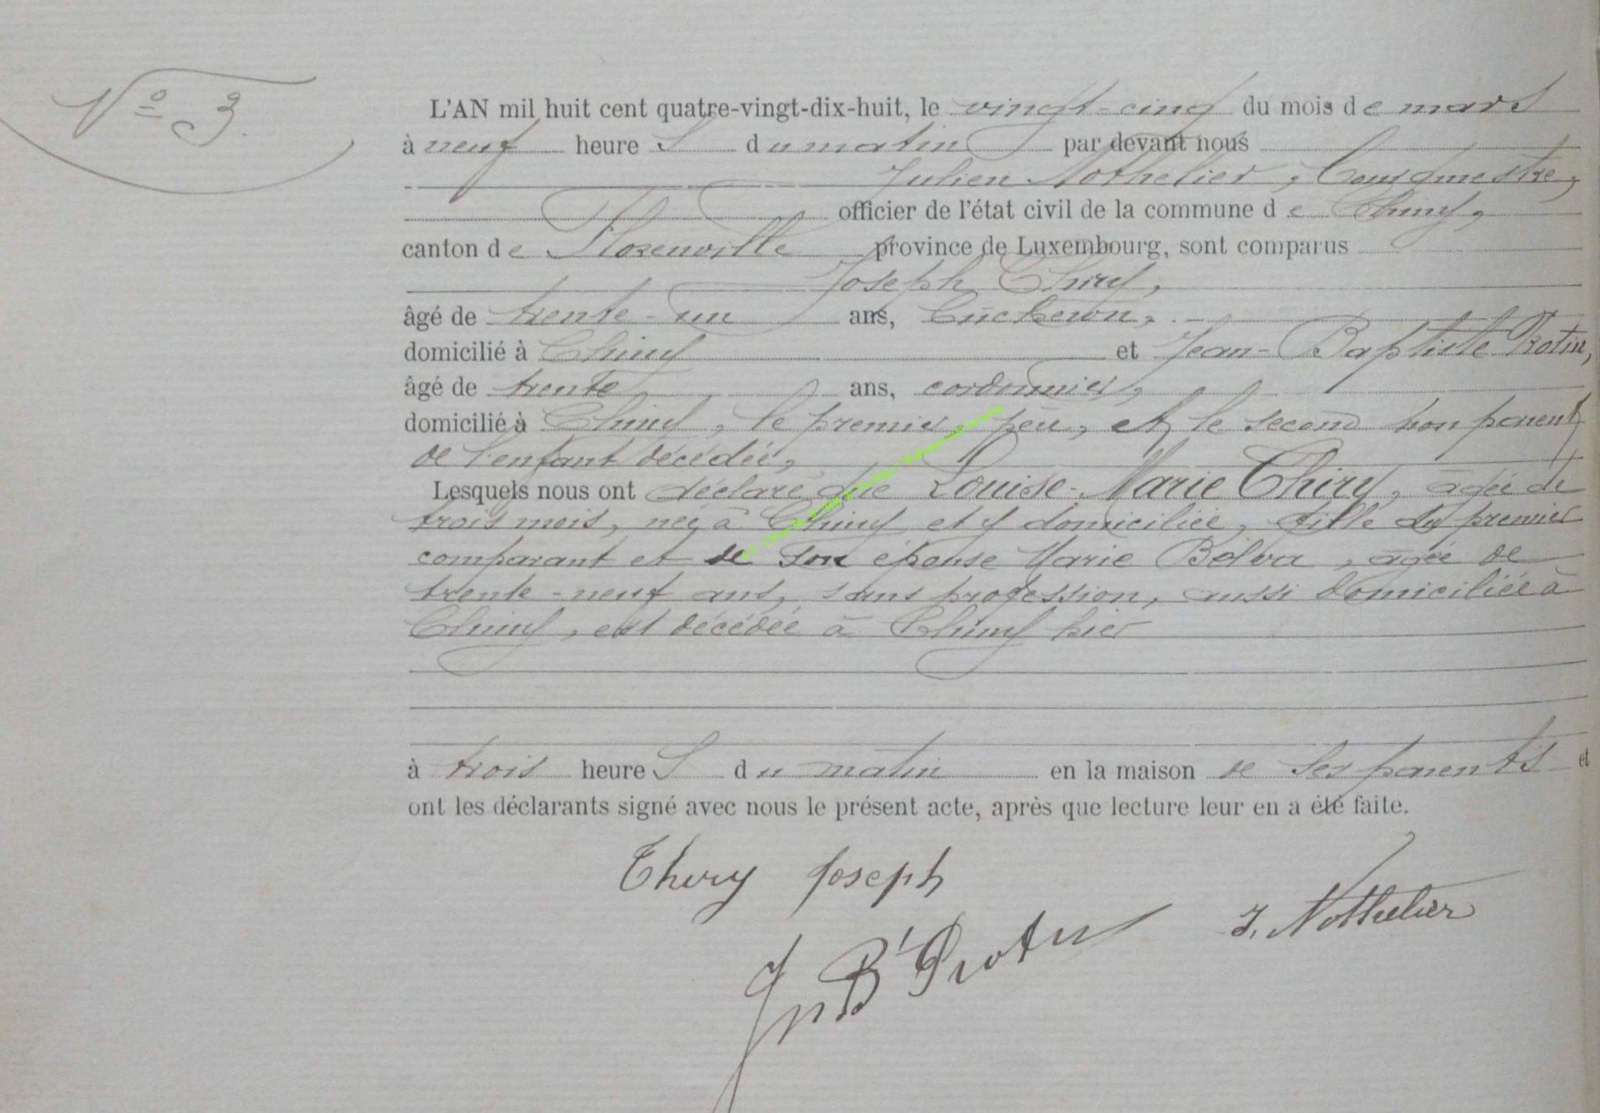 Nº 3.
L'AN mil huit cent quatre-vingt-dix-huit, le vingt-cinq du mois de mars
à neuf heures du matin par devant nous
Julien Nothelier, Bourgmestre,
officier de l'état civil de la commune de Chiny,
canton de Florenville province de Luxembourg, sont comparus
Joseph Thiry,
âgé de trente-un ans, bûcheron,
domicilié à Chiny et Jean-Baptiste Protin,
âgé de trente ans, cordonnier,
domicilié à Chiny, le premier, père, et le second non parent
de l'enfant décédée,
Lesquels nous ont déclaré que Louise-Marie Thiry, agée de
trois mois, née à Chiny et y domiciliée, fille du premier
comparant et de son épouse Marie Bolva, agée de
trente-neuf ans, sans profession, aussi domiciliée à
Chiny, est décédée à Chiny hier
à trois heures du matin en la maison de ses parents et
ont les déclarants signé avec nous le présent acte, après que lecture leur en a été faite.
Thiry Joseph
J. Nothelier
Jn Bte Protin